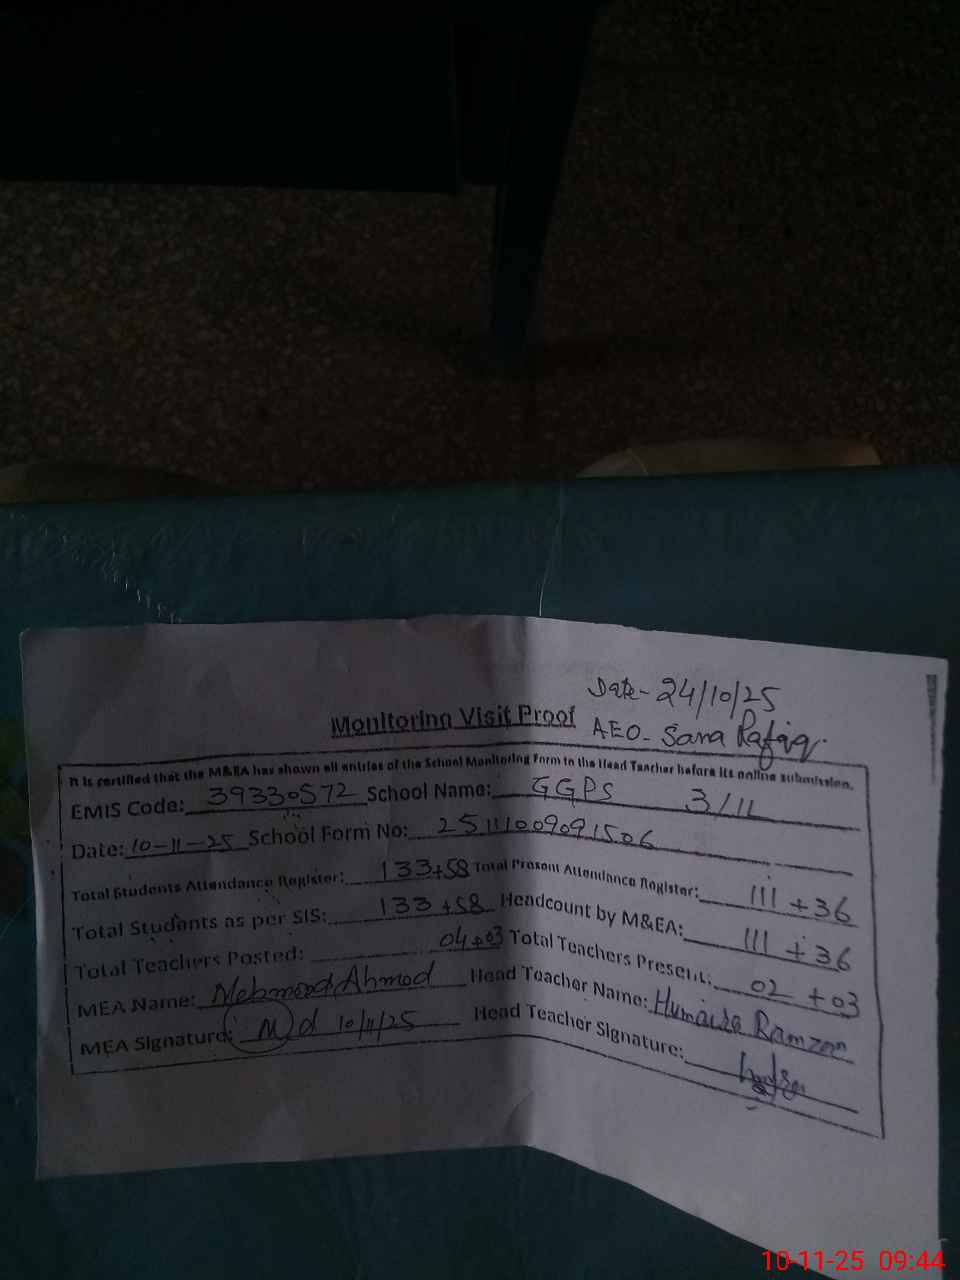 Date- 24/10/25
Monitoring Visit Proof AEO- Sana Rafiq.
It is certified that the M&EA has shown all entries of the School Monitoring Form to the Head Teacher before its online submission.
EMIS Code: 39330572 School Name: GGPS 3/1L
Date: 10-11-25 School Form No: 25111009091506
Total Students Attendance Register: 133+58 Total Present Attendance Register: 111 + 36
Total Students as per SIS: 133 +58 Headcount by M&EA: 111 + 36
Total Teachers Posted: 04+03 Total Teachers Present: 02 +03
MEA Name: Mehmood Ahmad Head Teacher Name: Humaira Ramzan
MEA Signature: Md 10/11/25 Head Teacher Signature:
10-11-25 09:44